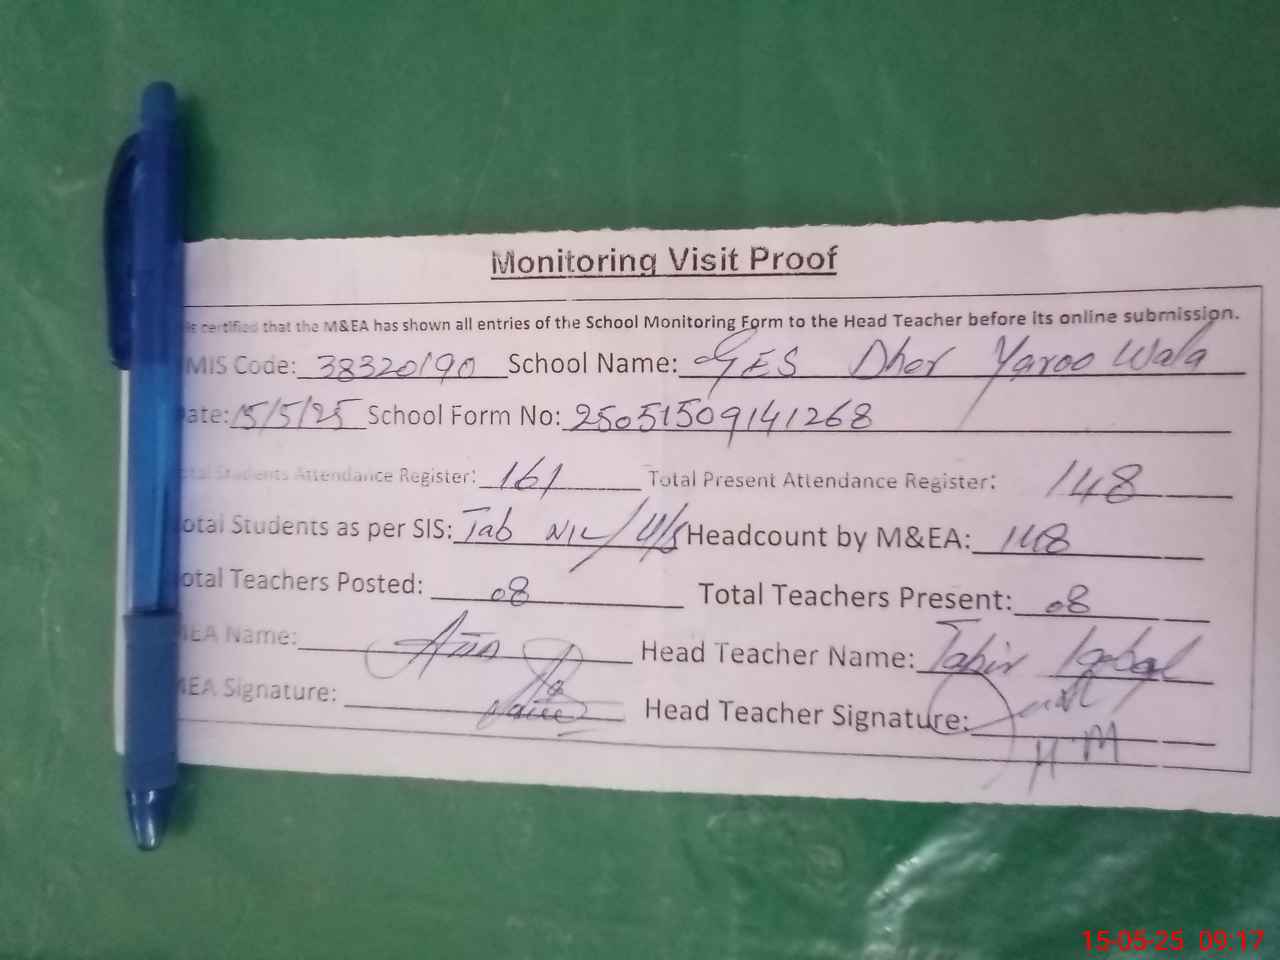 Monitoring Visit Proof
is certified that the M&EA has shown all entries of the School Monitoring Form to the Head Teacher before its online submission.
MIS Code: 38320190 School Name: GES Dher Yaroo Wala
ate: 15/5/25 School Form No: 25051509141268
tal Students Attendance Register: 161 Total Present Attendance Register: 148
otal Students as per SIS: Tab NIL Headcount by M&EA: 148
otal Teachers Posted: 08 Total Teachers Present: 08
MEA Name: Head Teacher Name: Tahir Iqbal
MEA Signature: Head Teacher Signature:
HM
15-05-25 09:17